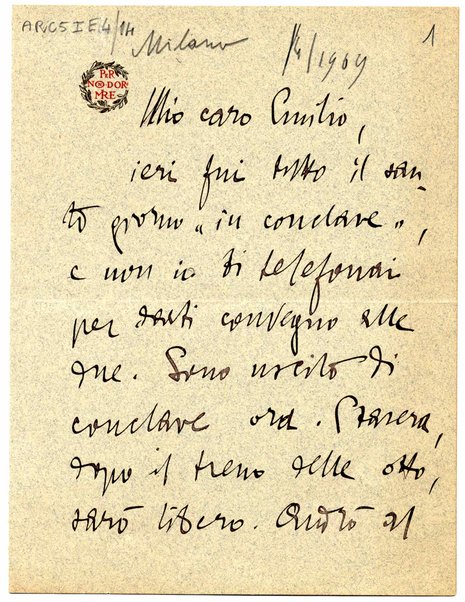 ARC5 I E 4/14
Milano
1909
1
PER
NON DOR
MIRE
Mio caro Emilio,
ieri fui tutto il san-
to giorno "in conclave",
e non io ti telefonai
per darti convegno alle
due. Sono uscito di
conclave ora. Stasera,
dopo il treno delle otto,
sarò libero. Andrò al